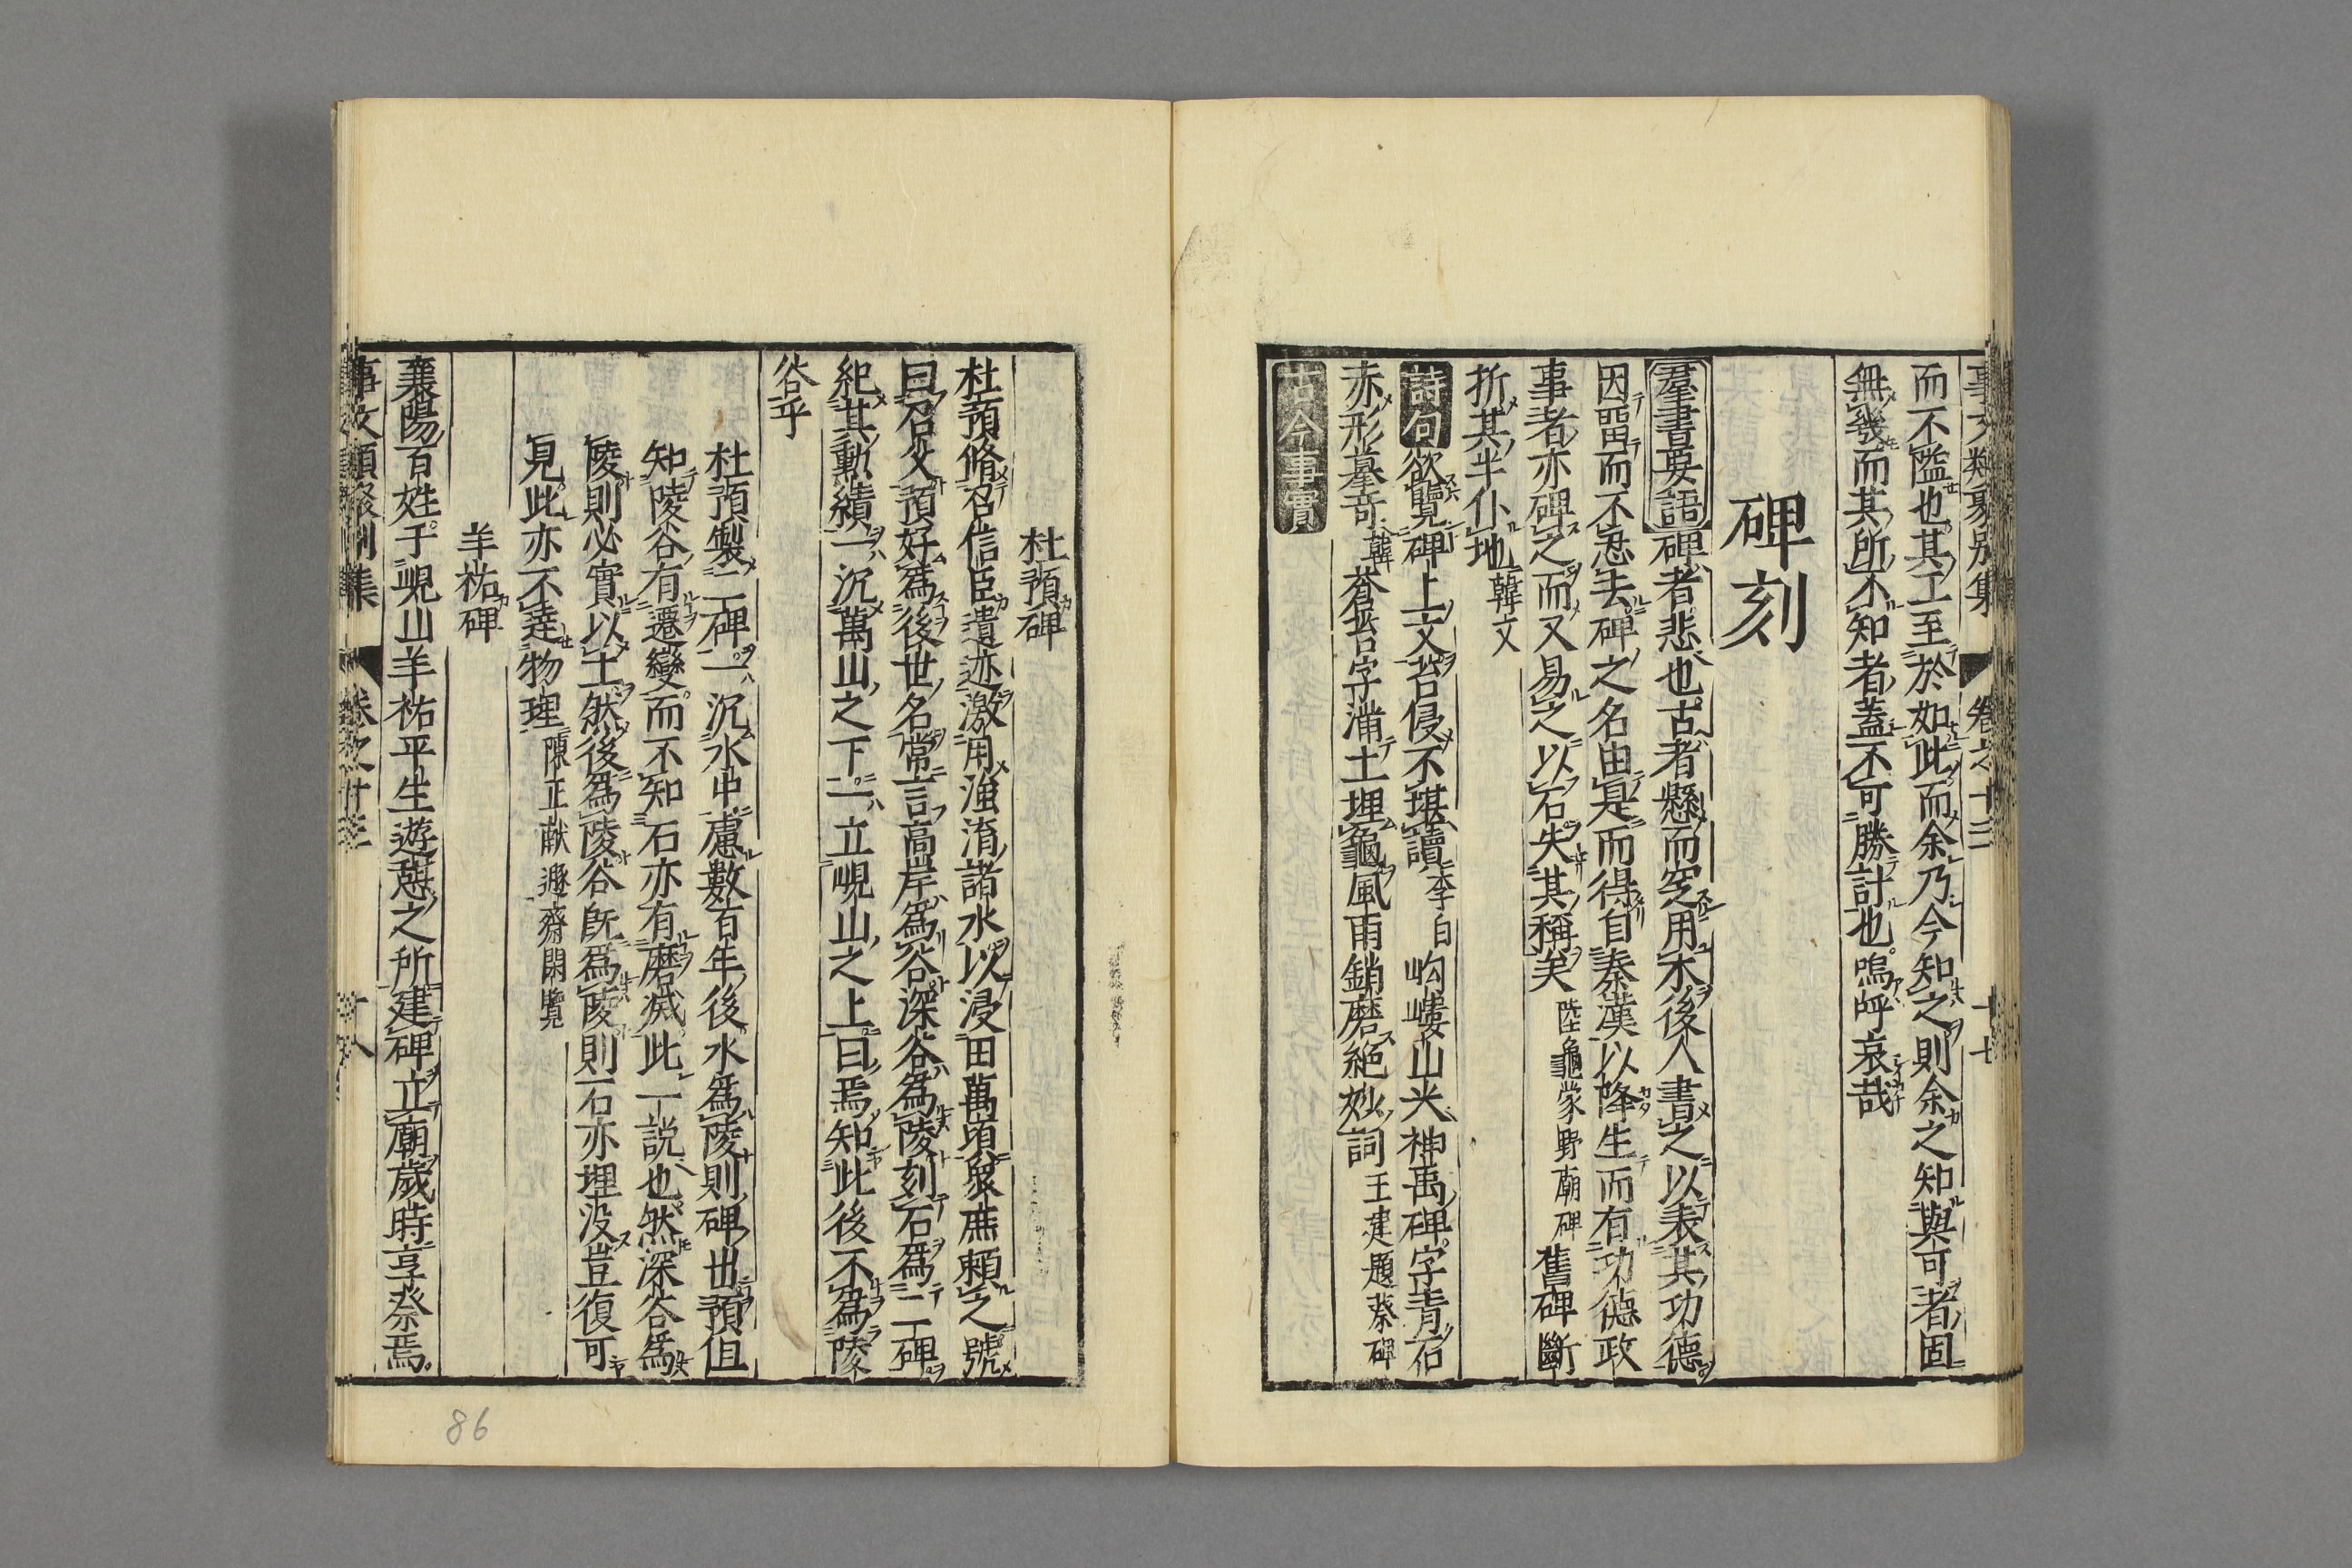 事文類聚別集 卷之十三 十七
而不隘也其工至於如此而余乃今知之則余之知與可者固
無幾而其所不知者蓋不可勝計也嗚呼哀哉
碑刻
羣書要語 碑者悲也古者懸而窆用木後人書之以表其功德
因畱而不忍去碑之名由是而得自秦漢以降生而有功德政
事者亦碑之而又易之以石失其稱矣 陸龜蒙野廟碑 舊碑斷
折其半仆地 韓文
詩句 欲覽碑上文苔侵不堪讀 李白 岣嶁山尖神禹碑字青石
赤形摹奇 韓 蒼苔字滿土埋龜風雨銷磨絕妙詞 王建題蔡碑
古今事實
杜預碑
杜預脩召信臣遺迹激用滍淯諸水以浸田萬頃衆庶賴之號
曰召父預好爲後世名常言高岸爲谷深谷爲陵刻石爲二碑
紀其勳績一沉萬山之下一立峴山之上曰焉知此後不爲陵
谷乎
杜預製二碑一沉水中慮數百年後水爲陵則碑出預但
知陵谷有遷變而不知石亦有磨滅此一説也然深谷爲
陵則必實以土然後爲陵谷既爲陵則石亦埋沒豈復可
見此亦不達物理 陳正敏遯齋閑覽
羊祜碑
襄陽百姓于峴山羊祐平生遊憩之所建碑立廟歲時享祭焉
卷之十三 十八
86